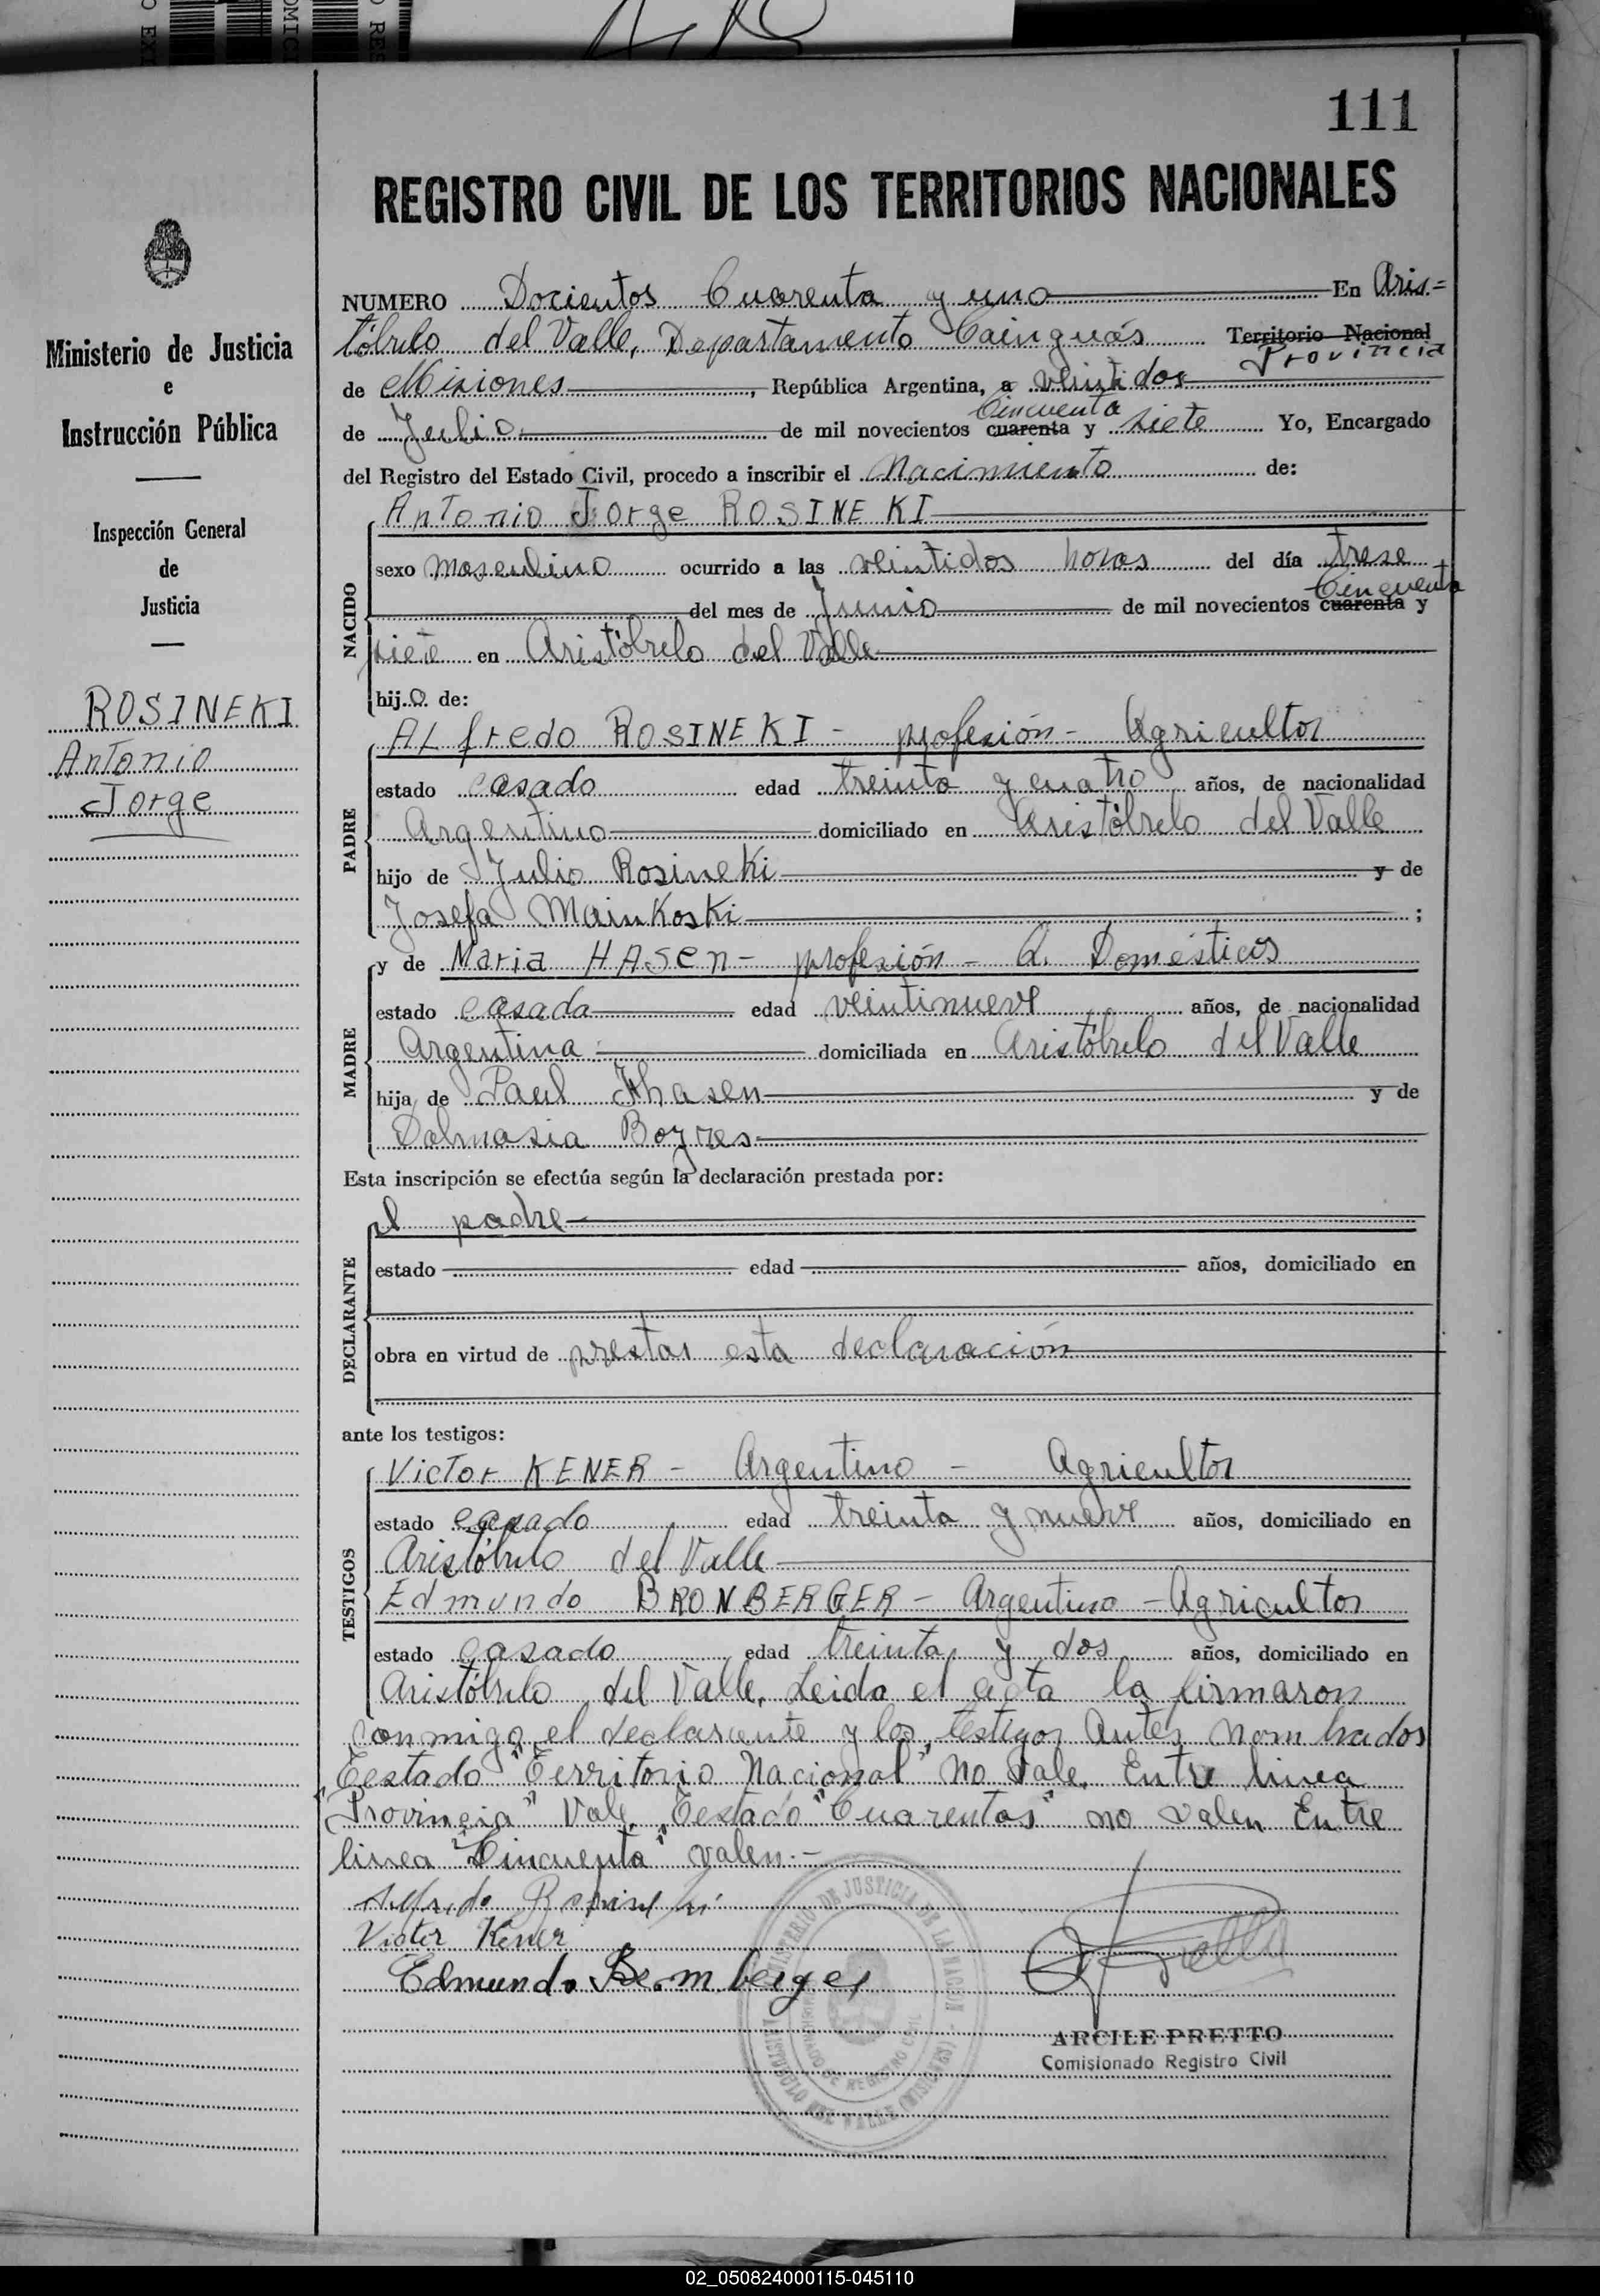 111
REGISTRO CIVIL DE LOS TERRITORIOS NACIONALES
Ministerio de Justicia
e
Instrucción Pública
Inspección General
de
Justicia
ROSINEKI
Antonio
Jorge
NUMERO Docientos Cuarenta y uno En Aris=
tóbulo del Valle, Departamento Cainguás Territorio Nacional
Provincia
de Misiones, República Argentina, a veintidos
Cincuenta
de Julio de mil novecientos cuarenta y siete Yo, Encargado
del Registro del Estado Civil, procedo a inscribir el Nacimiento de:
NACIDO
Antonio Jorge ROSINEKI
sexo masculino ocurrido a las veintidos horas del día trese
Cincuenta
del mes de Junio de mil novecientos cuarenta y
siete en Aristóbulo del Valle
hijo de:
PADRE
ALfredo ROSINEKI - profesión - Agricultor
estado casado edad treinta y cuatro años, de nacionalidad
Argentino domiciliado en Aristóbulo del Valle
hijo de Julio Rosineki y de
Josefa Mainkoski ;
MADRE
y de Maria HASEN - profesión - Q. Domésticos
estado casada edad veintinueve años, de nacionalidad
Argentina domiciliada en Aristóbulo del Valle
hija de Paul Hasen y de
Dalmasia Boyres
Esta inscripción se efectúa según la declaración prestada por:
DECLARANTE
el padre
estado edad años, domiciliado en
obra en virtud de prestar esta declaración
ante los testigos:
TESTIGOS
Victor KENER - Argentino - Agricultor
estado casado edad treinta y nueve años, domiciliado en
Aristóbulo del Valle
Edmundo BRONBERGER - Argentino - Agricultor
estado casado edad treinta y dos años, domiciliado en
Aristóbulo del Valle. Leida el acta la firmaron
conmigo el declarante y los testigos Antes nombrados
Testado "Territorio Nacional" No Vale. Entre linea
"Provincia" Vale. Testado "Cuarentas" no valen Entre
linea "Cincuenta" valen.-
Alfredo Rosineki
Victor Kener
Edmundo Bromberger
MINISTERIO DE JUSTICIA DE LA NACION
ARCILE PRETTO
Comisionado Registro Civil
02_050824000115-045110